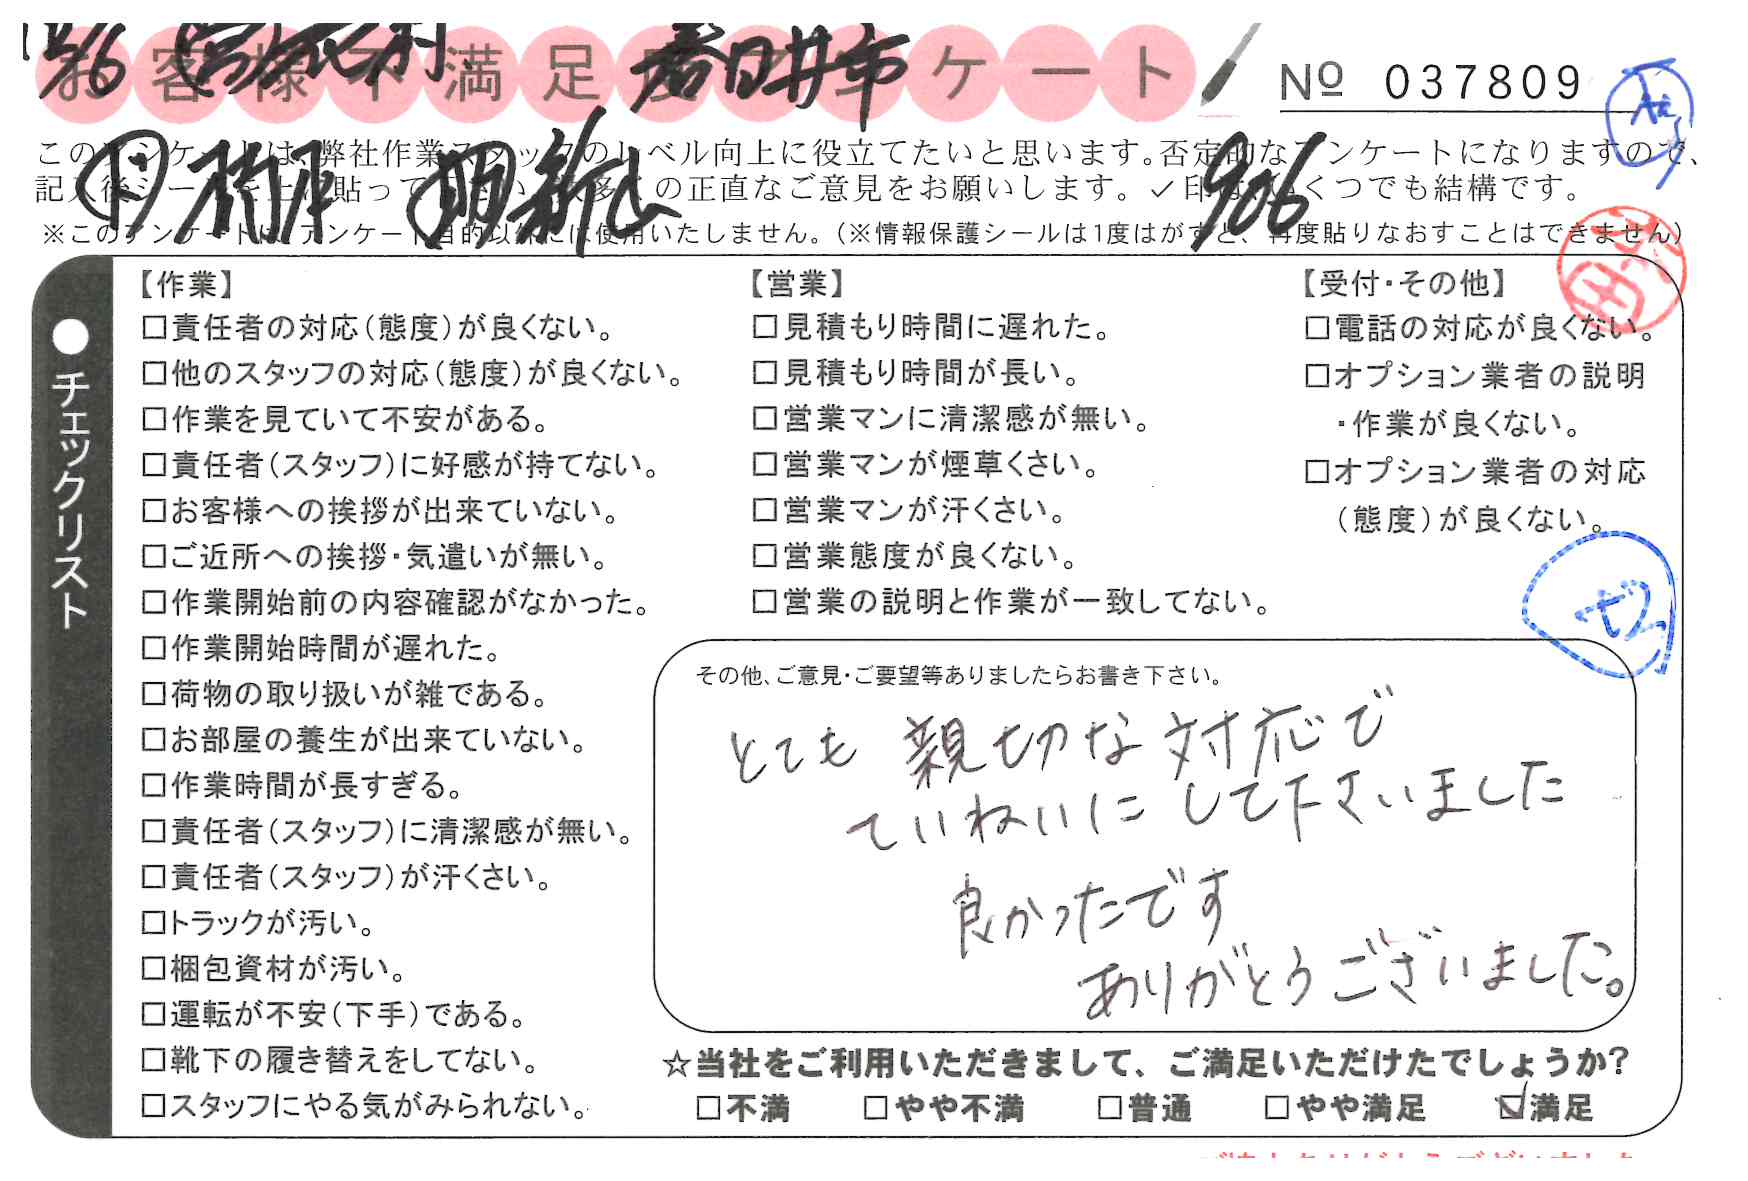 お客様不満足度アンケート
春日井市
№ 037809
このアンケートは、弊社作業スタッフのレベル向上に役立てたいと思います。否定的なアンケートになりますので、
記入後シールを上に貼って下さい。数多くの正直なご意見をお願いします。✓印はいくつでも結構です。
906
※このアンケートは、アンケート目的以外には使用いたしません。(※情報保護シールは1度はがすと、再度貼りなおすことはできません)
●チェックリスト
【作業】
□責任者の対応(態度)が良くない。
□他のスタッフの対応(態度)が良くない。
□作業を見ていて不安がある。
□責任者(スタッフ)に好感が持てない。
□お客様への挨拶が出来ていない。
□ご近所への挨拶・気遣いが無い。
□作業開始前の内容確認がなかった。
□作業開始時間が遅れた。
□荷物の取り扱いが雑である。
□お部屋の養生が出来ていない。
□作業時間が長すぎる。
□責任者(スタッフ)に清潔感が無い。
□責任者(スタッフ)が汗くさい。
□トラックが汚い。
□梱包資材が汚い。
□運転が不安(下手)である。
□靴下の履き替えをしてない。
□スタッフにやる気がみられない。
【営業】
□見積もり時間に遅れた。
□見積もり時間が長い。
□営業マンに清潔感が無い。
□営業マンが煙草くさい。
□営業マンが汗くさい。
□営業態度が良くない。
□営業の説明と作業が一致してない。
【受付・その他】
□電話の対応が良くない。
□オプション業者の説明
・作業が良くない。
□オプション業者の対応
(態度)が良くない。
その他、ご意見・ご要望等ありましたらお書き下さい。
とても親切な対応で
ていねいにして下さいました
良かったです
ありがとうございました。
☆当社をご利用いただきまして、ご満足いただけたでしょうか?
□不満 □やや不満 □普通 □やや満足 ☑満足